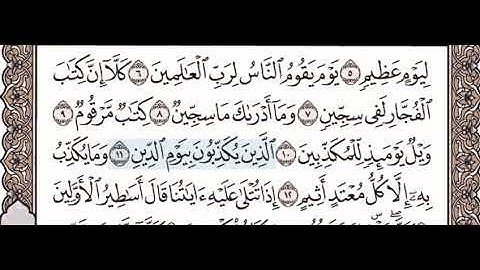 لِيَوْمٍ عَظِيمٍ ۝٥ يَوْمَ يَقُومُ ٱلنَّاسُ لِرَبِّ ٱلْعَـٰلَمِينَ ۝٦ كَلَّآ إِنَّ كِتَـٰبَ
ٱلْفُجَّارِ لَفِى سِجِّينٍ ۝٧ وَمَآ أَدْرَىٰكَ مَا سِجِّينٌ ۝٨ كِتَـٰبٌ مَّرْقُومٌ ۝٩
وَيْلٌ يَوْمَئِذٍ لِّلْمُكَذِّبِينَ ۝١٠ ٱلَّذِينَ يُكَذِّبُونَ بِيَوْمِ ٱلدِّينِ ۝١١ وَمَا يُكَذِّبُ
بِهِۦٓ إِلَّا كُلُّ مُعْتَدٍ أَثِيمٍ ۝١٢ إِذَا تُتْلَىٰ عَلَيْهِ ءَايَـٰتُنَا قَالَ أَسَـٰطِيرُ ٱلْأَوَّلِينَ